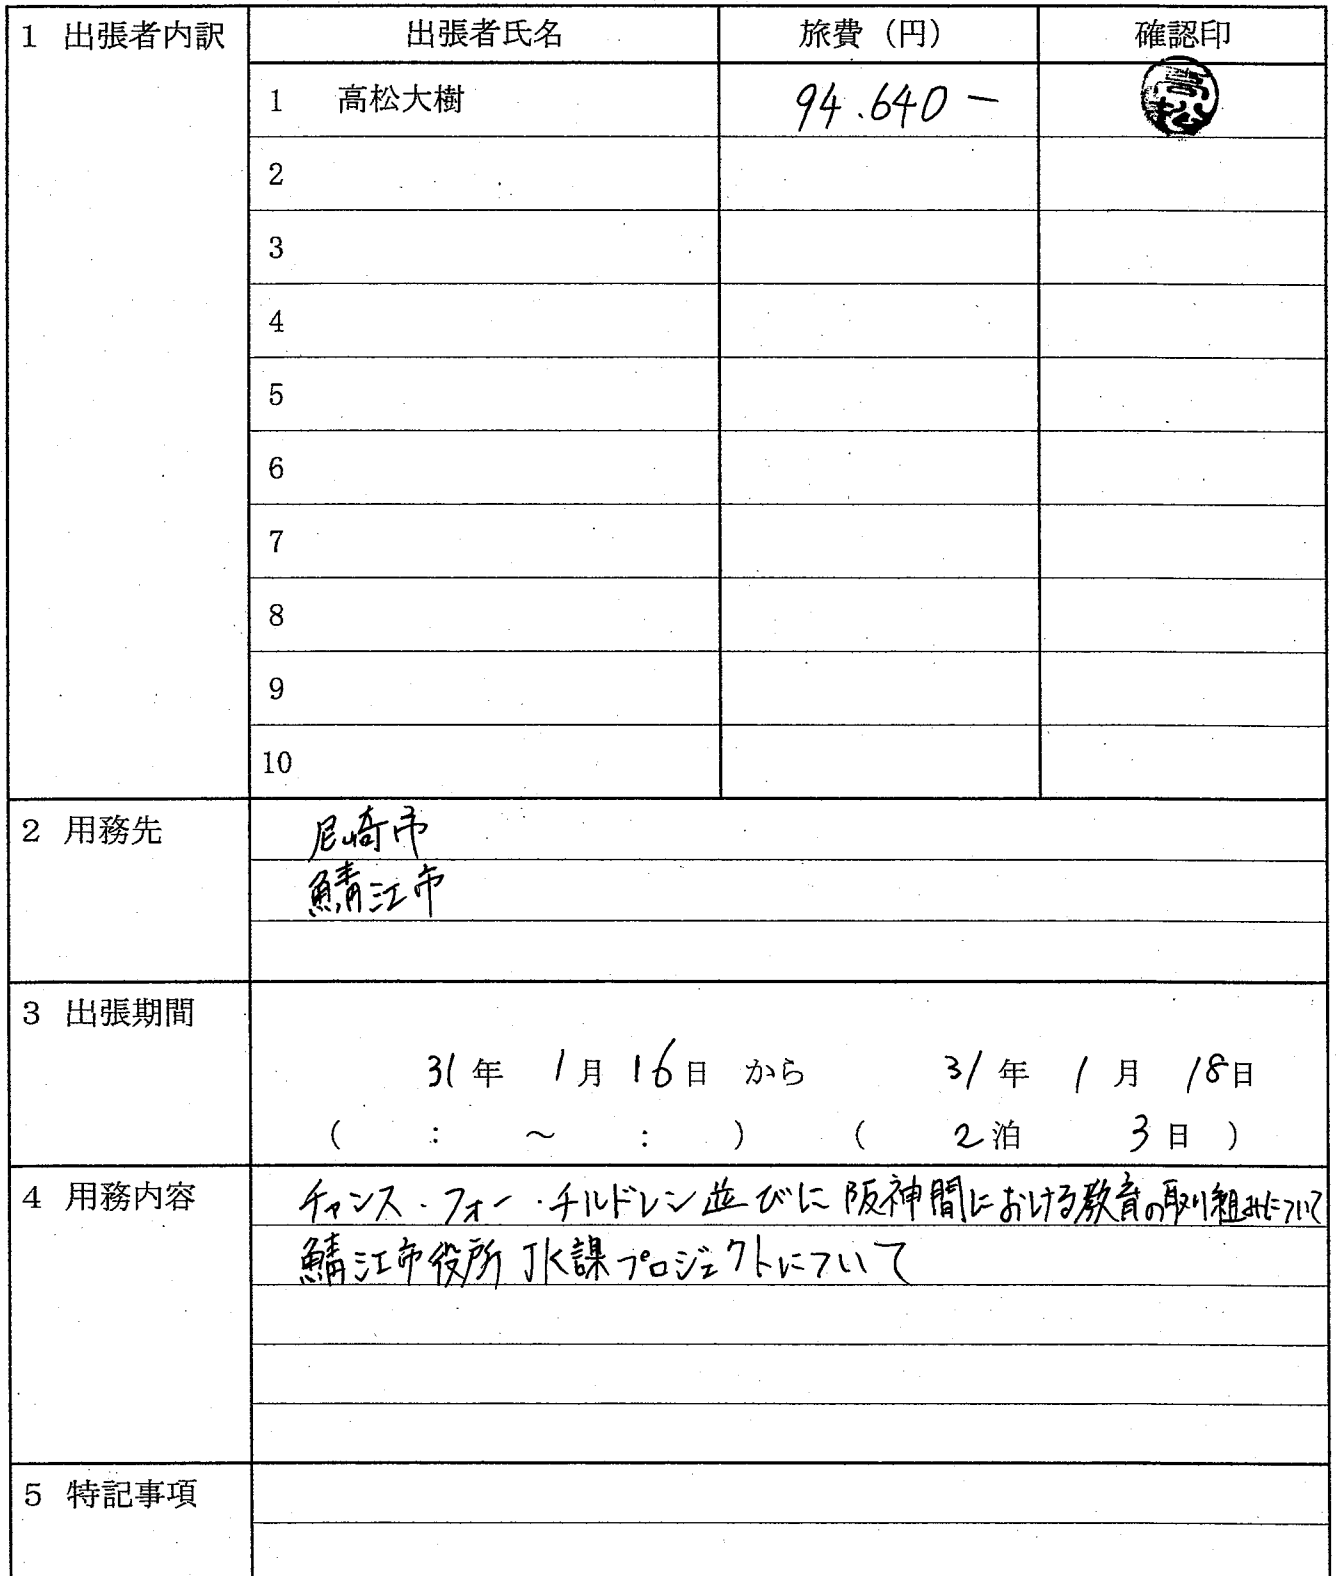 1 出張者内訳 出張者氏名 旅費（円） 確認印
1 高松大樹 94.640－ 高松
2
3
4
5
6
7
8
9
10
2 用務先 尼崎市
鯖江市
3 出張期間
31年 1月16日 から 31年 1月 18日
（ : ～ : ） （ 2泊 3日 ）
4 用務内容 チャンス・フォー・チルドレン並びに阪神間における教育の取り組みについて
鯖江市役所JK課プロジェクトについて
5 特記事項